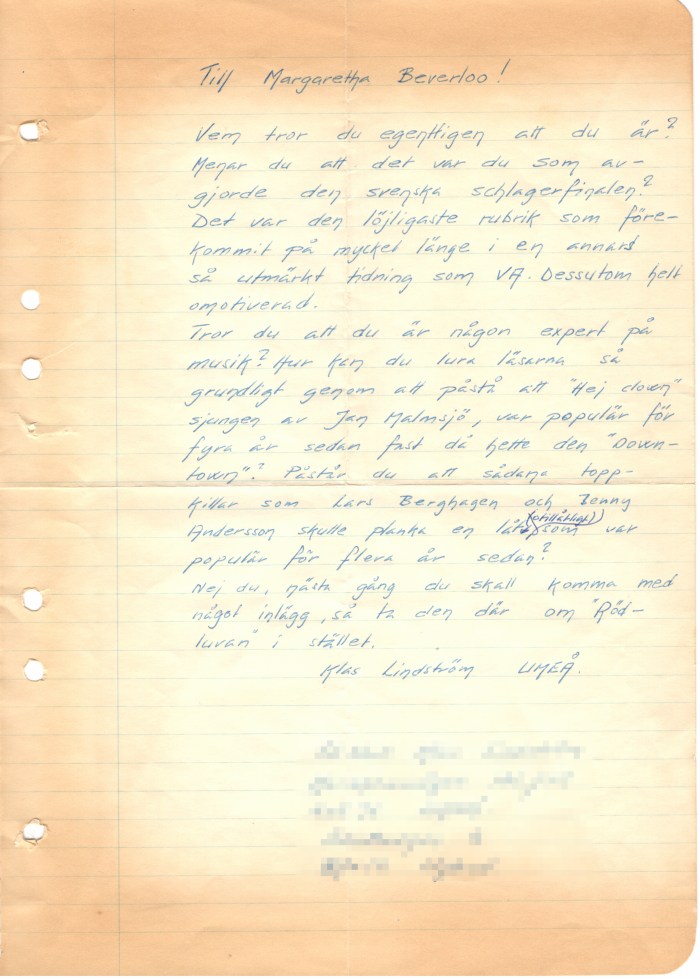 Till Margaretha Beverloo!
Vem tror du egentligen att du är?
Menar du att det var du som av-
gjorde den svenska schlagerfinalen?
Det var den löjligaste rubrik som före-
kommit på mycket länge i en annars
så utmärkt tidning som VA. Dessutom helt
omotiverad.
Tror du att du är någon expert på
musik? Hur kan du lura läsarna så
grundligt genom att påstå att "Hej clown"
sjungen av Jan Malmsjö, var populär för
fyra år sedan fast då hette den "Down-
town"? Påstår du att sådana topp-
killar som Lars Berghagen och Benny
(otillåtligt)
Andersson skulle planka en låt som var
populär för flera år sedan?
Nej du, nästa gång du skall komma med
något inlägg, så ta den där om "Röd-
luvan" i stället.
Klas Lindström UMEÅ.